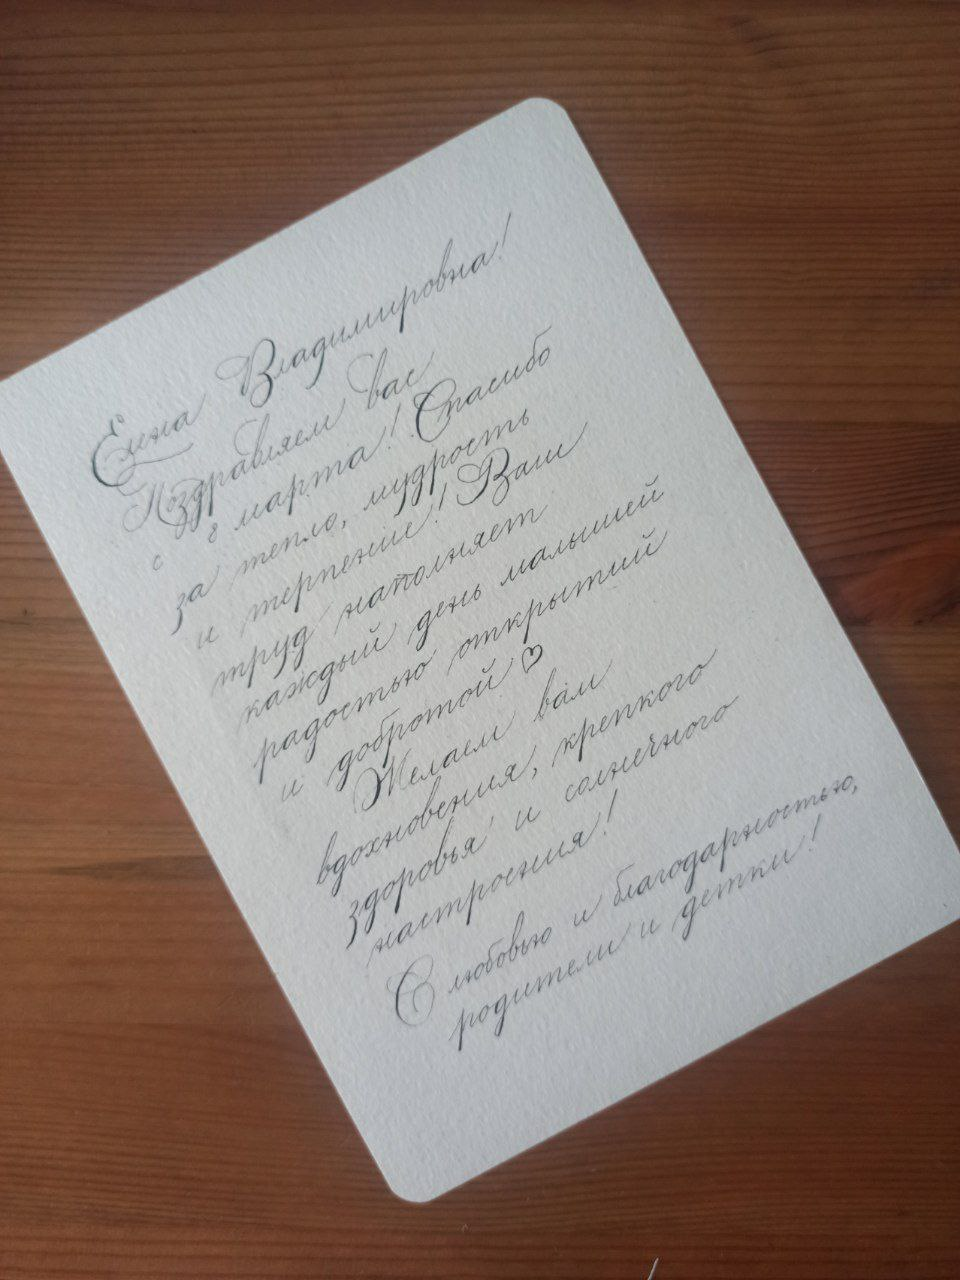 Елена Владимировна!
Поздравляем вас
с 8 марта! Спасибо
за тепло, мудрость
и терпение! Ваш
труд наполняет
каждый день малышей
радостью открытий
и добротой ♡
Желаем вам
вдохновения, крепкого
здоровья и солнечного
настроения!
С любовью и благодарностью,
родители и детки!